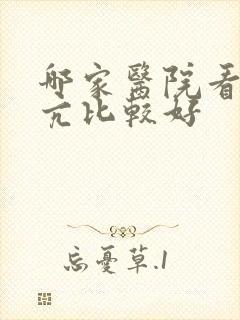 哪家醫院看
亢比較好
忘憂草.1